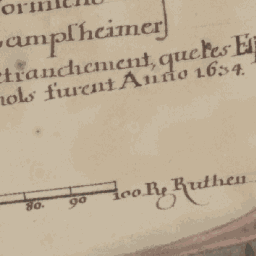 ampsheimer
etranchement, que les Es
nols furent Anno 1634.
80. 90 100 R Ruthen